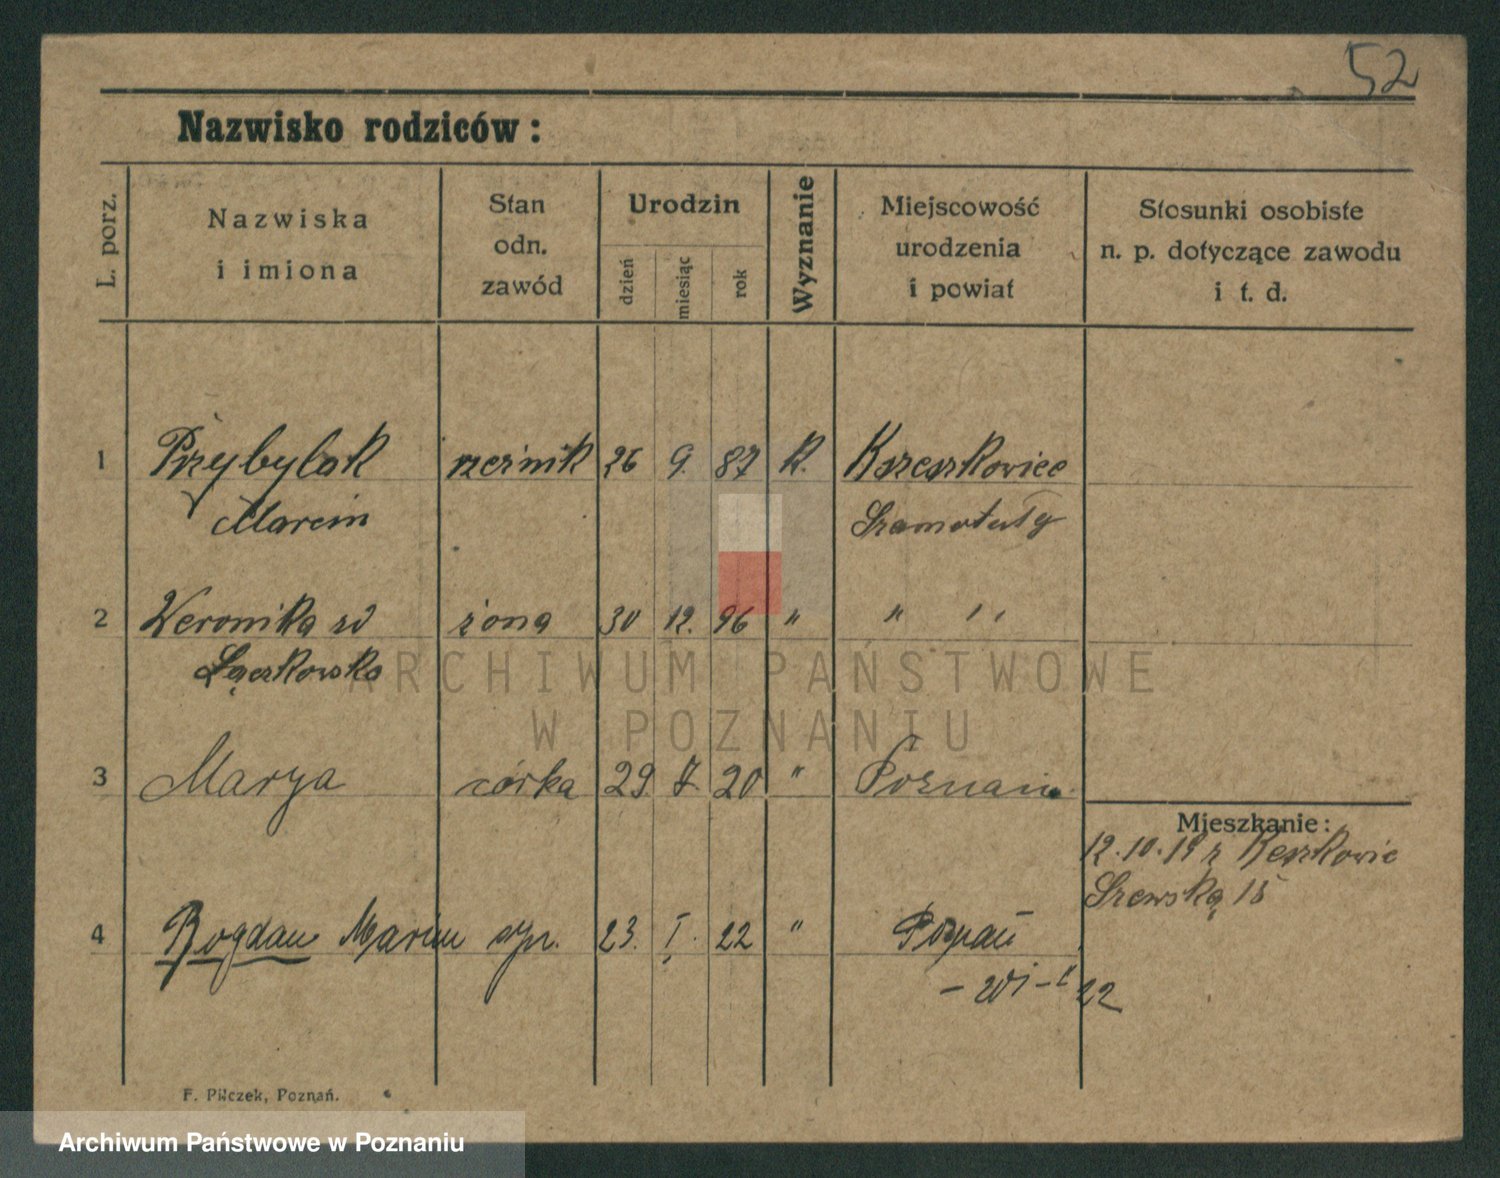 52
Nazwisko rodziców:
L. porz.
Nazwiska
i imiona
Stan
odn.
zawód
Urodzin
dzień
miesiąc
rok
Wyznanie
Miejscowość
urodzenia
i powiat
Stosunki osobiste
n. p. dotyczące zawodu
i t. d.
1 Przybylak rzeźnik 26 9. 87 k.
Marcin Szamotuły
2 Weronika żona 30 12. 96 " " "
ARCHIWUM PAŃSTWOWE
W POZNANIU
3 Marya córka 29. 7. 20 " Poznań
Mieszkanie:
12.10.19 z
Szewska 15
4 Bogdan Marian syn. 23. I. 22 " Poznań
22
F. Pilczek, Poznań.
Archiwum Państwowe w Poznaniu